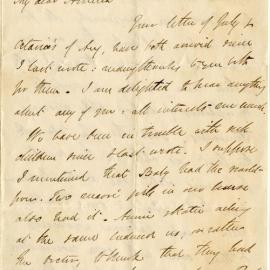 My dear
Your letter of July &
Octavia's of Aug, have both arrived since
I last wrote: many thanks to you both
for them. I am delighted to hear anything
about any of you: all interests me much.
We have been in trouble with sick
children since I last wrote. I suppose
I mentioned that Baby had the
in our house
also had it. Annie
at the same induced us, or rather
the doctor, to think that they had